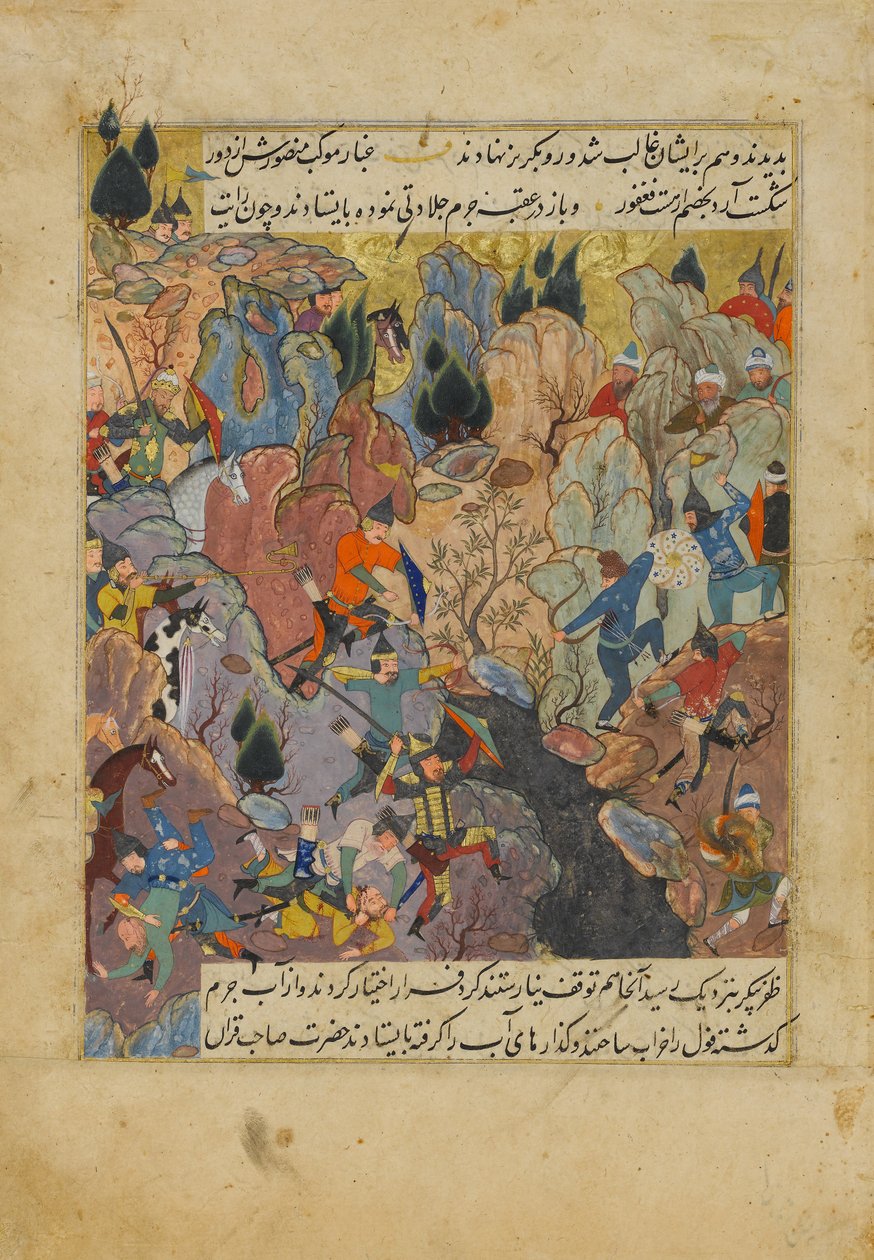 بدیدند وهم بر ایشان غالب شد و رو بگریز نهادند ف غبار موکب منصورش از دور
شکست آرد بخصم ار هست فغفور و باز در عقبهٔ جرم جلادتی نموده بایستادند و چون رایت
ظفر پیکر نزدیک رسید آنجا هم توقف نیارستند کرد فرار اختیار کردند و از آب جرم
گذشته قول را خراب ساختند و گذارهای آب را گرفته بایستادند حضرت صاحب قران